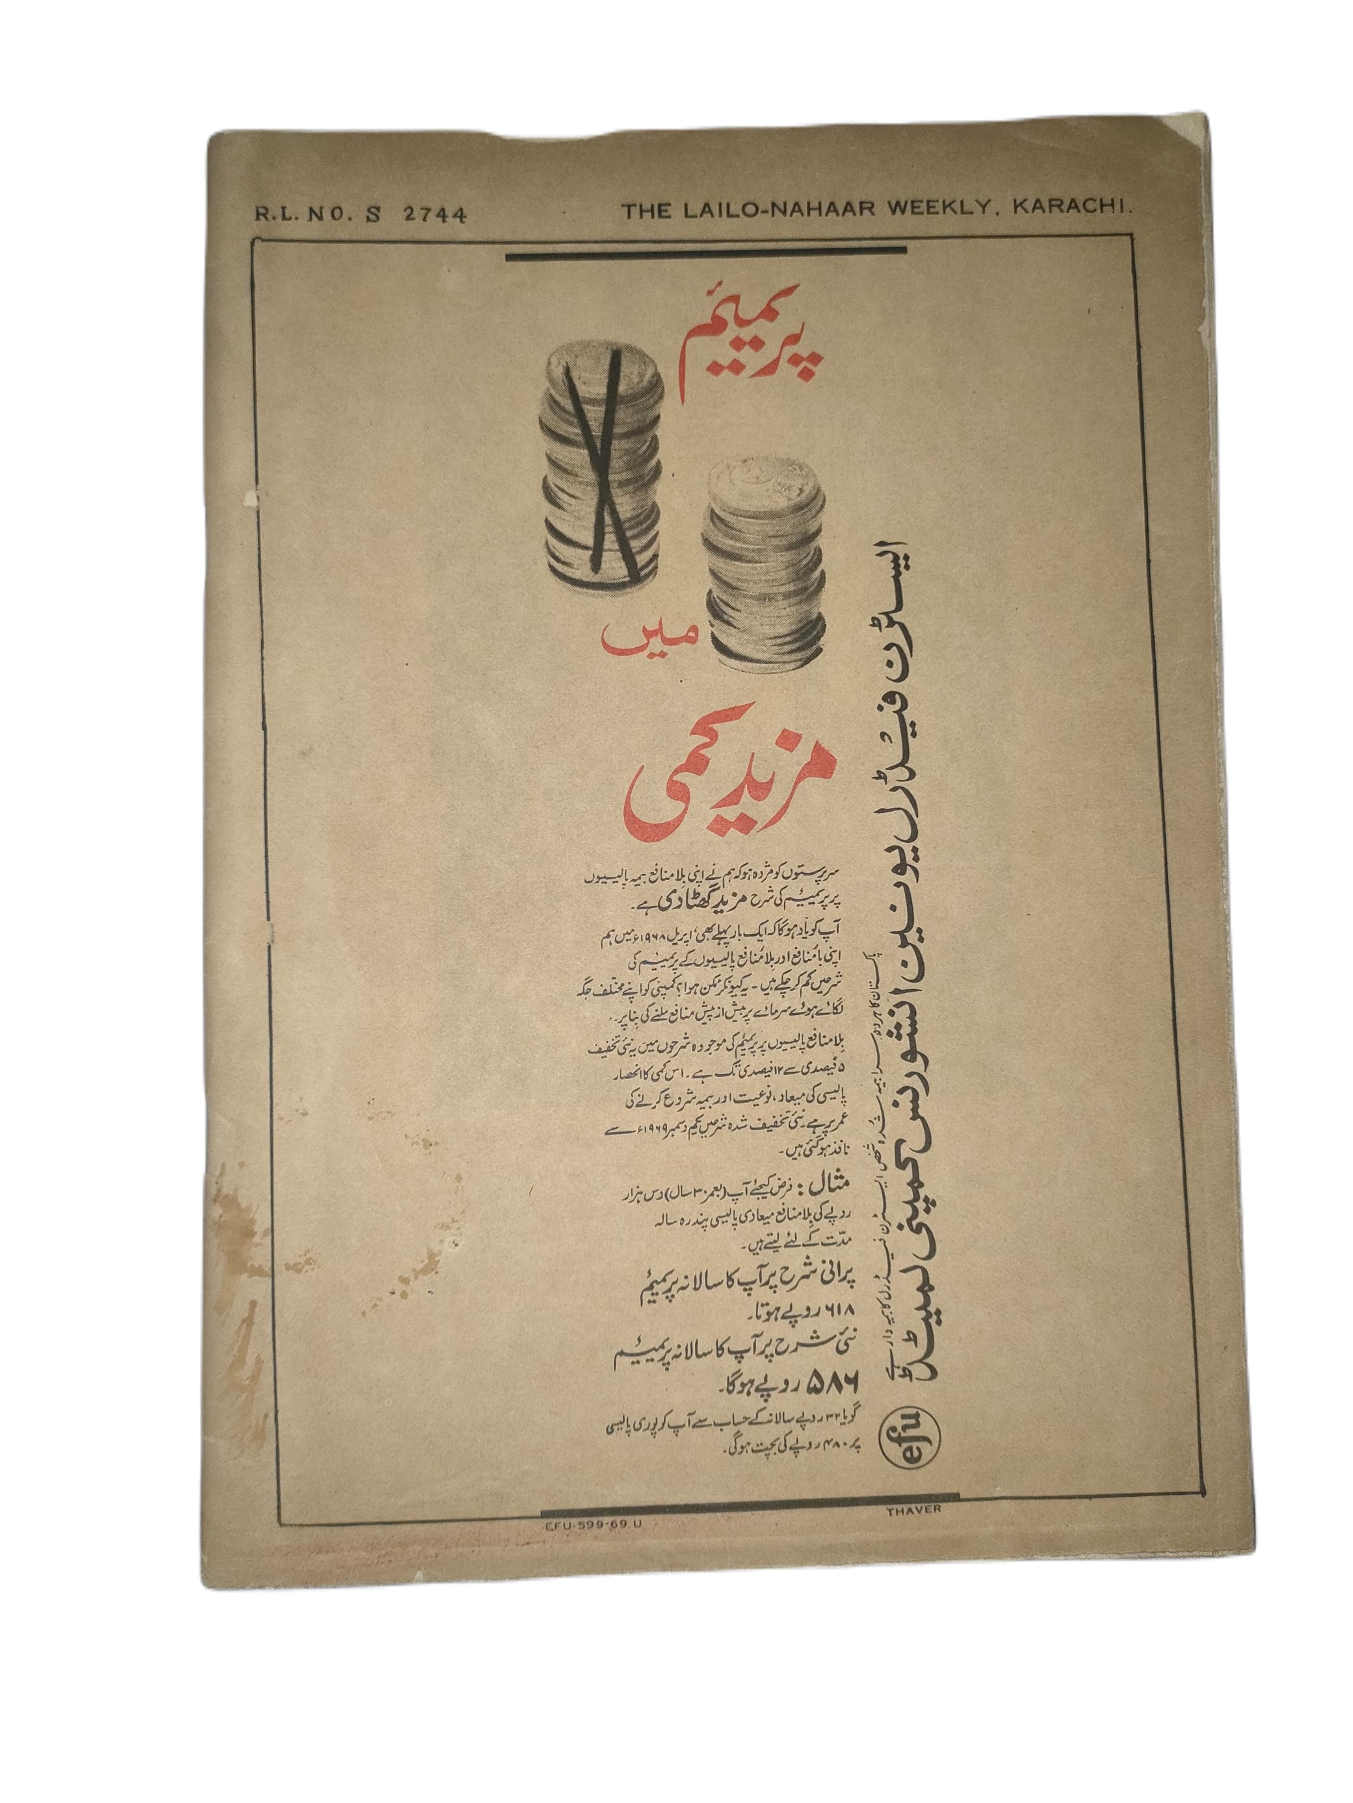 R.L. NO. S 2744
THE LAILO-NAHAAR WEEKLY, KARACHI.
پریمیئم
میں
مزید کمی
سرپرستوں کو مژدہ ہو کہ ہم نے اپنی بلامنافع بیمہ پالیسیوں
پر پریمیئم کی شرح مزید گھٹا دی ہے۔
آپ کو یاد ہوگا کہ ایک بار پہلے بھی، اپریل ۱۹۶۸ء میں ہم
اپنی بامُنافع اور بلامُنافع پالیسیوں کے پریمیئم کی
شرحیں کم کرچکے ہیں۔ یہ کیونکر ممکن ہوا؟ کمپنی کو اپنے مختلف جگہ
لگائے ہوئے سرمائے پر بیش از بیش منافع ملنے کی بِنا پر۔۔
بلامنافع پالیسیوں پر پریمیئم کی موجودہ شرحوں میں یہ نئی تخفیف
۵ فیصدی سے ۱۲ فیصدی تک ہے۔ اس کمی کا انحصار
پالیسی کی میعاد، نوعیت اور بیمہ شروع کرنے کی
عمر پر ہے۔ نئی تخفیف شدہ شرحیں یکم دسمبر ۱۹۶۹ء سے
نافذ ہوگئی ہیں۔
مثال: فرض کیجئے آپ (بعمر ۳۰ سال) دس ہزار
روپے کی بلامنافع میعادی پالیسی پندرہ سالہ
مدّت کے لئے لیتے ہیں۔
پرانی شرح پر آپ کا سالانہ پریمیئم
۶۱۸ روپے ہوتا۔
نئی شرح پر آپ کا سالانہ پریمیئم
۵۸۶ روپے ہوگا۔
گویا ۳۲ روپے سالانہ کے حساب سے آپ کو پوری پالیسی
پر ۴۸۰ روپے کی بچت ہوگی۔
پاکستان کا ہر دوسرا بیمہ شدہ شخص ایسٹرن فیڈرل کا بیمہ دار ہے
ایسٹرن فیڈرل یونین انشورنس کمپنی لمیٹڈ
efu
EFU-599-69 U
THAVER